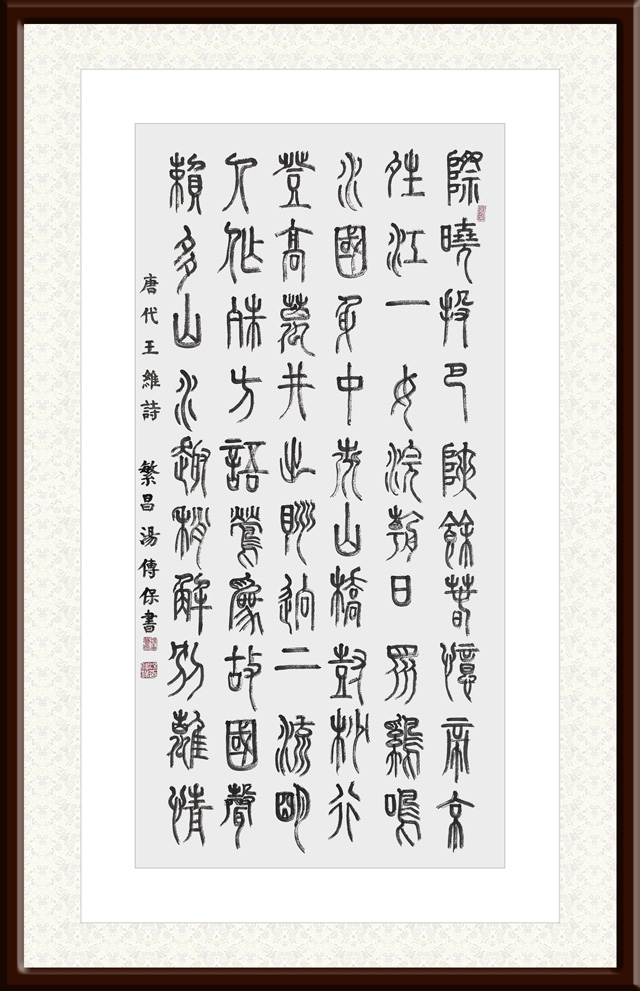 際曉投巴峽餘春憶帝京
晴江一女浣朝日眾鷄鳴
水國舟中市山橋樹杪行
登高萬井出眺迥二流明
人作殊方語鶯為故國聲
賴多山水趣稍解別離情
唐代王維詩 繁昌湯傳保書